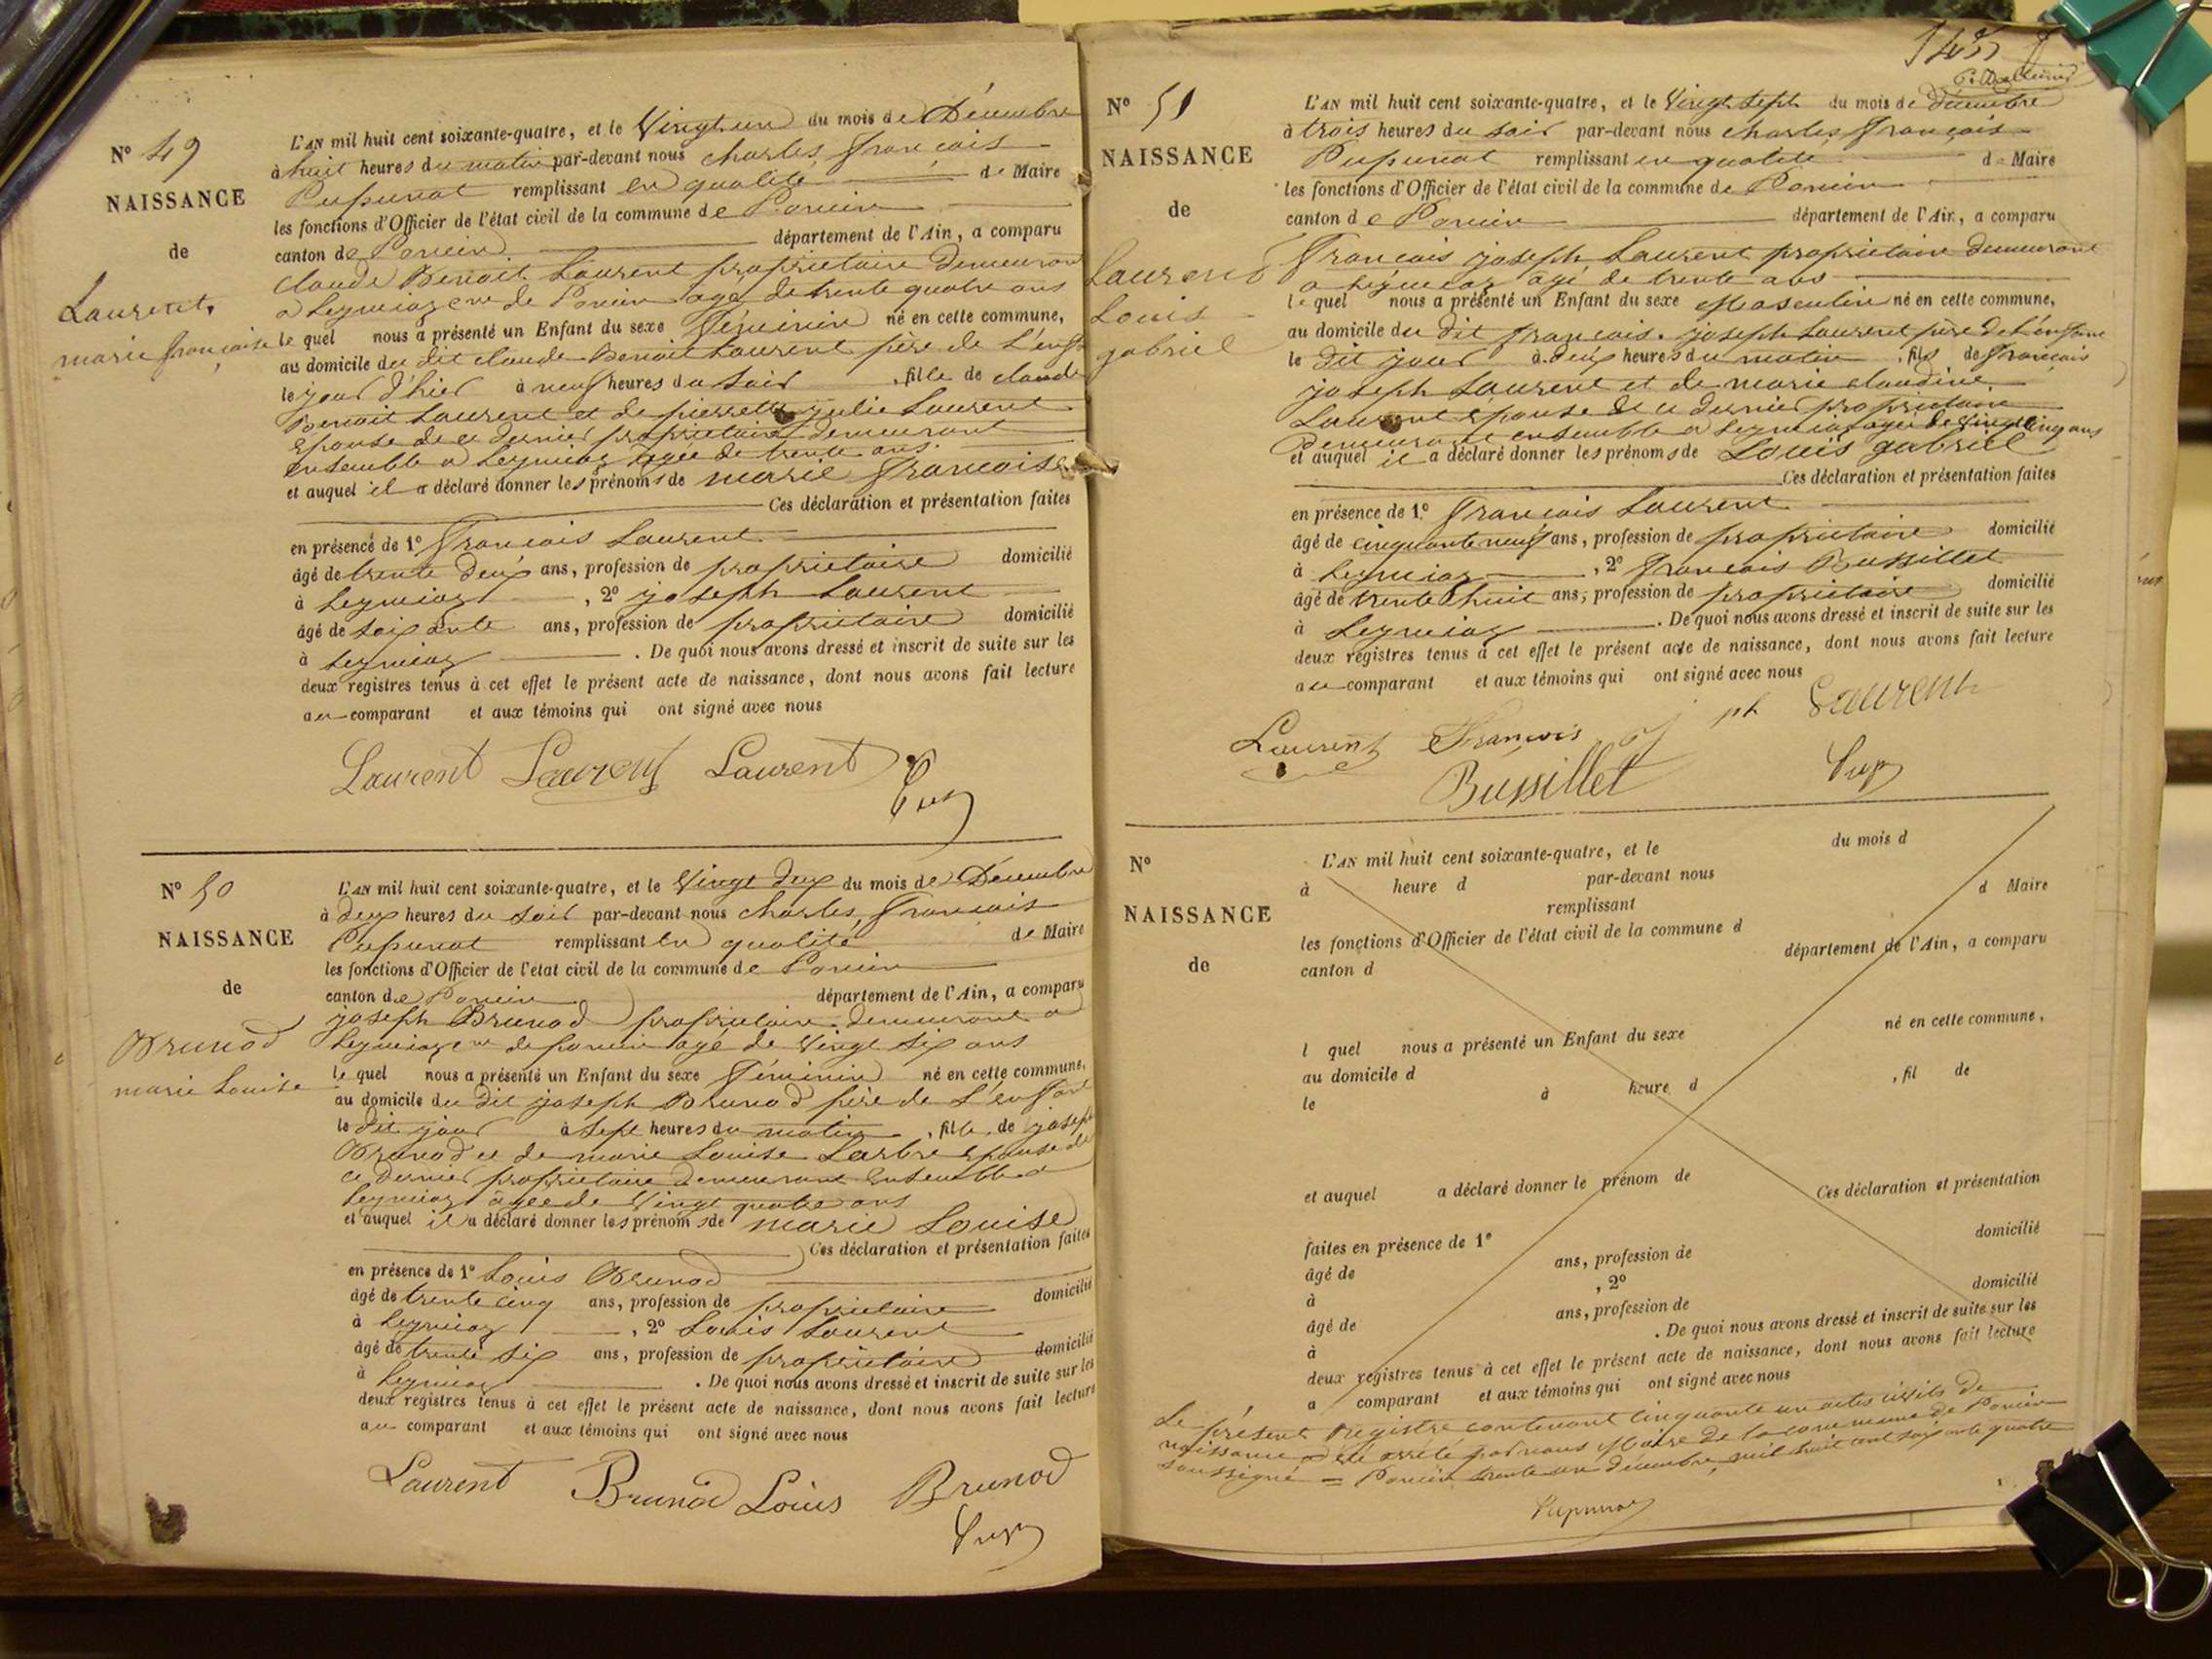 N° 49
NAISSANCE
de
Laurent,
marie françoise
L'AN mil huit cent soixante-quatre, et le Vingt un du mois de Décembre
à huit heures du matin par-devant nous charles, françois
Pupunat remplissant en qualité de Maire
les fonctions d'Officier de l'état civil de la commune de Poncin
canton de Poncin département de l'Ain, a comparu
claude Benoit Laurent propriétaire demeurant
a Leymiaz cne de Poncin agé de trente quatre ans
le quel nous a présenté un Enfant du sexe féminin né en cette commune,
au domicile du dit claude Benoit Laurent père de L'enft
le jour d'hier à neuf heures du soir , fille de claude
Benoit Laurent et de pierrette julie Laurent
Epouse de ce dernier propriétaire demeurant
Ensemble a Leymiaz agée de trente ans.
et auquel il a déclaré donner les prénoms de marie françoise
Ces déclaration et présentation faites
en présence de 1° François Laurent
âgé de trente deux ans, profession de propriétaire domicilié
à Leymiaz , 2° joseph Laurent
âgé de soixante ans, profession de propriétaire domicilié
à Leymiaz . De quoi nous avons dressé et inscrit de suite sur les
deux registres tenus à cet effet le présent acte de naissance, dont nous avons fait lecture
au comparant et aux témoins qui ont signé avec nous
Laurent Laurent Laurent
Pup
N° 50
NAISSANCE
de
Brunod
marie Louise
L'AN mil huit cent soixante-quatre, et le Vingt deux du mois de Décembre
à deux heures du soir par-devant nous charles, françois
Pupunat remplissant en qualité de Maire
les fonctions d'Officier de l'état civil de la commune de Poncin
canton de Poncin département de l'Ain, a comparu
joseph Brunod propriétaire demeurant a
Leymiaz cne de poncin agé de Vingt six ans
le quel nous a présenté un Enfant du sexe féminin né en cette commune,
au domicile du dit joseph Brunod père de L'enfant
le dit jour à sept heures du matin , fille de joseph
Brunod et de marie Louise Larbre Epouse de
ce dernier propriétaire demeurant Ensemble a
Leymiaz agée de Vingt quatre ans
et auquel il a déclaré donner les prénoms de marie Louise
Ces déclaration et présentation faites
en présence de 1° Louis Brunod
âgé de trente cinq ans, profession de propriétaire domicilié
à Leymiaz , 2° Louis Laurent
âgé de trente six ans, profession de propriétaire domicilié
à Leymiaz . De quoi nous avons dressé et inscrit de suite sur les
deux registres tenus à cet effet le présent acte de naissance, dont nous avons fait lecture
au comparant et aux témoins qui ont signé avec nous
Laurent Brunod Louis Brunod
Pup
N° 51
NAISSANCE
de
Laurent
Louis
gabriel
L'AN mil huit cent soixante-quatre, et le Vingt sept du mois de décembre
à trois heures du soir par-devant nous charles, françois
Pupunat remplissant en qualité de Maire
les fonctions d'Officier de l'état civil de la commune de Poncin
canton de Poncin département de l'Ain, a comparu
François joseph Laurent propriétaire demeurant
a Leymiaz agé de trente ans
le quel nous a présenté un Enfant du sexe Masculin né en cette commune,
au domicile du dit françois joseph Laurent père de L'enfant
le dit jour à deux heures du matin , fils de françois
joseph Laurent et de marie claudine
Laurent épouse de ce dernier propriétaire
Demeurant ensemble a Leymiaz agée de vingt cinq ans
et auquel il a déclaré donner les prénoms de Louis gabriel
Ces déclaration et présentation faites
en présence de 1° François Laurent
âgé de cinquante neuf ans, profession de propriétaire domicilié
à Leymiaz , 2° françois Bussillet
âgé de trente huit ans, profession de propriétaire domicilié
à Leymiaz . De quoi nous avons dressé et inscrit de suite sur les
deux registres tenus à cet effet le présent acte de naissance, dont nous avons fait lecture
au comparant et aux témoins qui ont signé avec nous
Laurent François j ph Laurent
Bussillet Pup
N°
NAISSANCE
de
L'AN mil huit cent soixante-quatre, et le du mois d
à heure d par-devant nous
remplissant d Maire
les fonctions d'Officier de l'état civil de la commune d
canton d département de l'Ain, a comparu
l quel nous a présenté un Enfant du sexe né en cette commune,
au domicile d
le à heure d , fil de
et auquel a déclaré donner le prénom de
Ces déclaration et présentation
faites en présence de 1°
âgé de ans, profession de domicilié
à , 2°
âgé de ans, profession de domicilié
à . De quoi nous avons dressé et inscrit de suite sur les
deux registres tenus à cet effet le présent acte de naissance, dont nous avons fait lecture
a comparant et aux témoins qui ont signé avec nous
Le présent registre contenant cinquante un actes civils de
naissance a été arrêté par nous Maire de la commune de Poncin
soussigné = Poncin trente un décembre mil huit cent soixante quatre
Pupunat